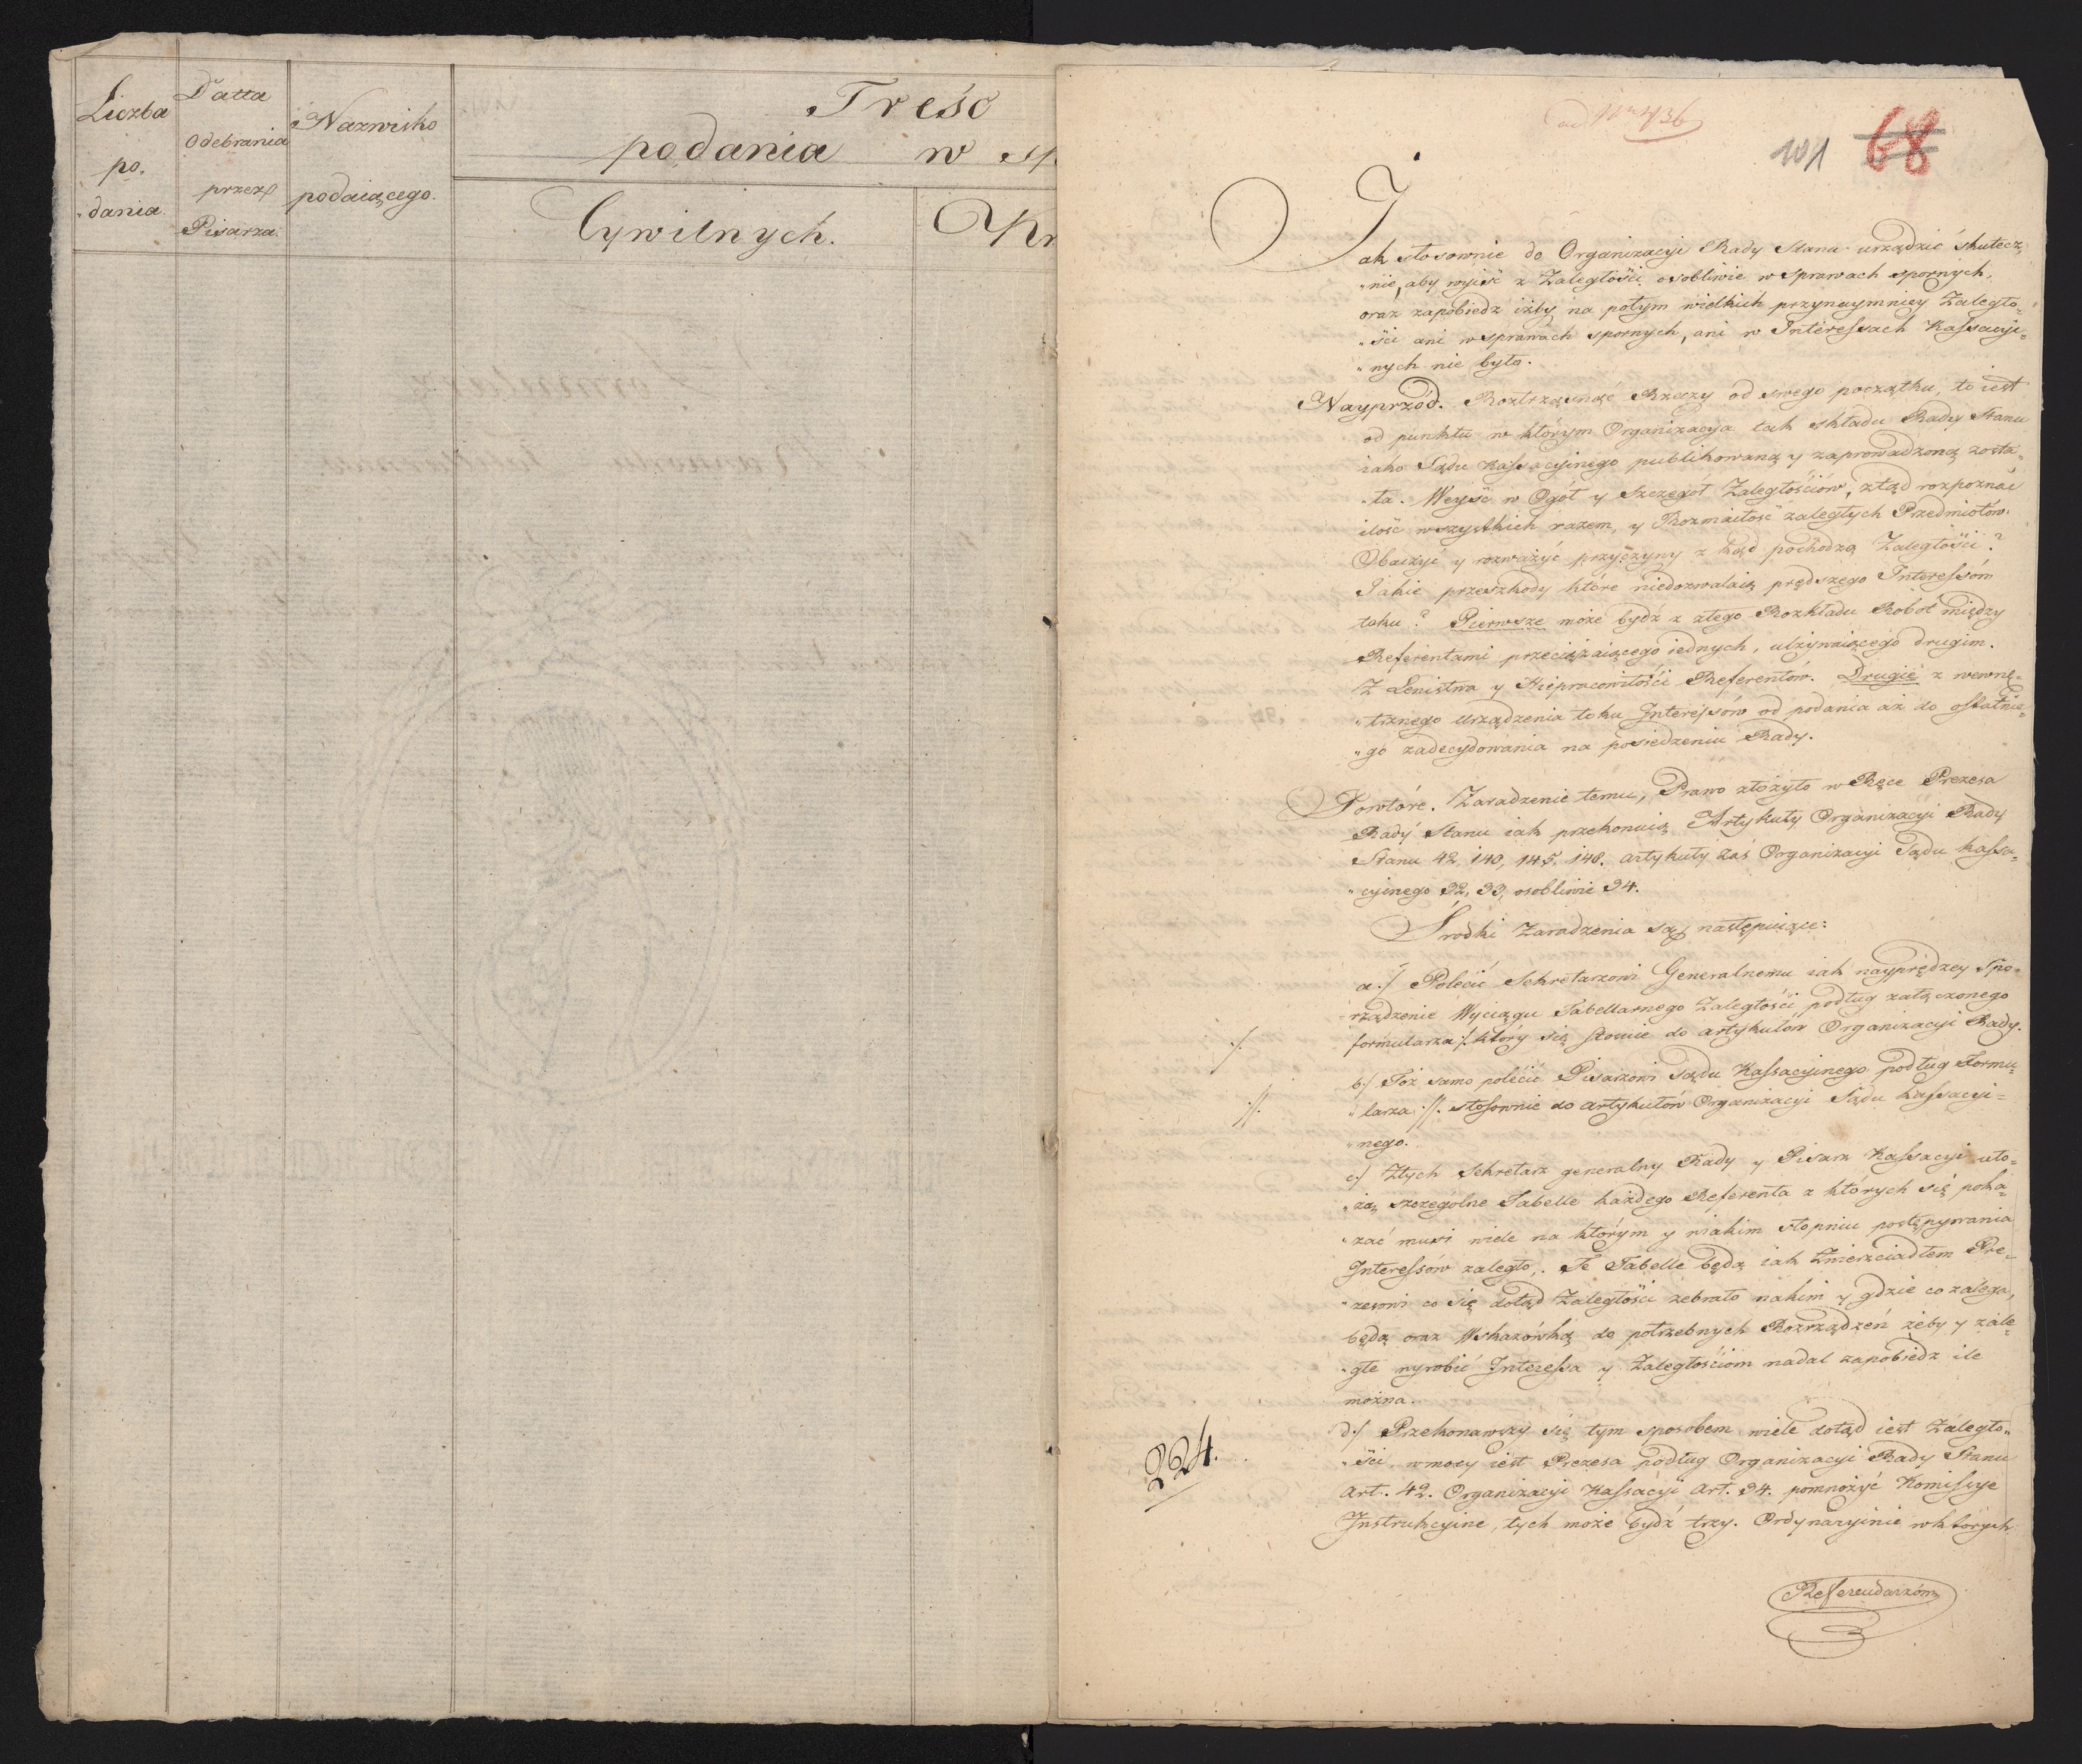 Liczba
po,
,dania
Datta
Odebrania
przez
Pisarza.
Nazwisko
podaiącego.
Treść
podania w sp
Cywilnych.
Kr
ad
101 68
Jak stosownie do Organizacyi Rady Stanu urządzić skutecz,
„nie, aby wyiść z Zaległości osobliwie w Sprawach spornych,
oraz zapobiedz iżby na potym wielkich przynaymniey Zaległo„
„ści ani w sprawach spornych, ani w Interessach Kassacyi„
„nych nie było.
Nayprzód. Roztrząsnąć Rzeczy od swego początku, to iest
od punktu w którym Organizacya tak składu Rady Stanu
iako Sądu Kassacyinego publikowaną y zaprowadzoną zosta„
„ła. Weyść w Ogół y Szczegół Zaległościów, ztąd rozpoznać
ilość wszystkich razem, y Rozmaitość zaległych Przedmiotów.
Obaczyć y rozważyć przyczyny z kąd pochodzą Zaległości?
Jakie przeszkody które niedozwalaią prędszego Interessóm
toku? Pierwsze może bydź z złego Rozkładu Robót między
Referentami przeciążaiącego iednych, ulżywaiącego drugim.
Z Lenistwa y Niepracowitości Referentów. Drugie z wewnę„
„trznego Urządzenia toku Interessów od podania aż do ostatnie„
„go zadecydowania na posiedzeniu Rady.
Powtóre. Zaradzenie temu, Prawo złożyło w Ręce Prezesa
Rady Stanu iak przekonuią Artykuły Organizacyi Rady
Stanu 42, 140, 145, 148. artykuły zaś Organizacyi Sądu Kassa„
„cyinego 32, 33, osobliwie 34.
Środki Zaradzenia są następuiące:
a./ Polecić Sekretarzowi Generalnemu iak nayprędzey Spo„
rządzenie Wyciągu Tabellarnego Zaległości, podług załączonego
./. formularza ./. który się stosuie do artykułów Organizacyi Rady.
b./ Toż samo polecić Pisarzowi Sądu Kassacyinego podług Formu„
.//. „larza .//. stosownie do artykułów Organizacyi Sądu Kassacyi„
„nego.
c./ Ztych Sekretarz generalny Rady y Pisarz Kassacyi uło„
„żą szczególne Tabelle każdego Referenta z których się poka„
„zać musi wiele na którym y wiakim stopniu postępywania
Interessów zaległo,. Te Tabelle będą iak Zwierzciadłem Pre„
„zesowi co się dotąd Zaległości zebrało nakim y gdzie co zalega,
będą oraz Wskazówką do potrzebnych Rozrządzeń żeby y zale„
„głe wyrobić Interessa y Zaległościom nadal zapobiedz ile
można.
d./ Przekonawszy się tym sposobem wiele dotąd iest Zaległo„
„ści, wmocy iest Prezesa podług Organizacyi Rady Stanu
224. Art. 42. Organizacyi Kassacyi Art. 34. pomnożyć Komissye
Instrukcyine, tych może bydź trzy. Ordynaryinie wktórych
Referendarzóm